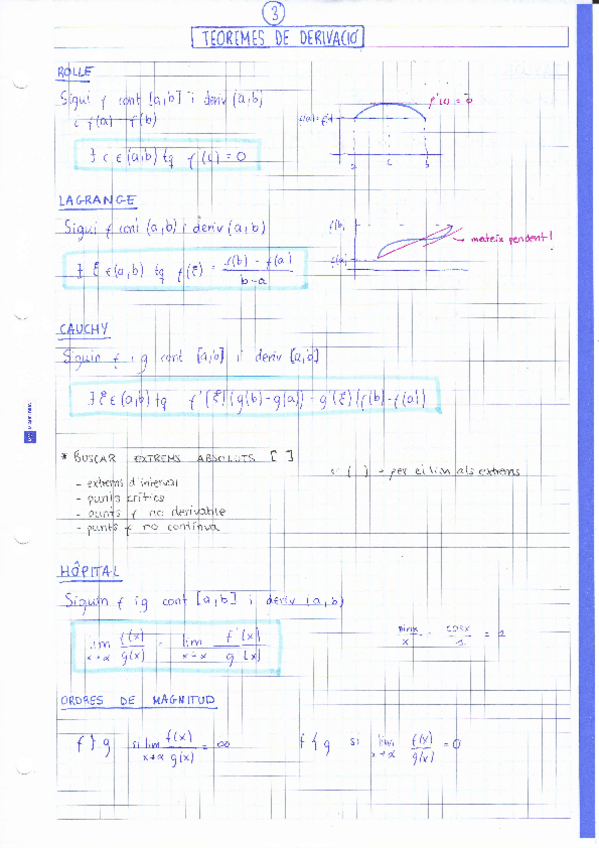 3
TEOREMES DE DERIVACIÓ
ROLLE
Sigui f cont [a,b] i deriv (a,b)
i f(a) f(b)
∃ c ∈ (a,b) tq f'(c) = 0
f'(c) = 0
a c b
LAGRANGE
Sigui f cont (a,b) i deriv (a,b)
∃ ξ ∈ (a,b) tq f(ξ) = f(b) - f(a) / b-a
f(b)
f(a)
mateix pendent!
CAUCHY
Siguin f i g cont [a,b] i deriv (a,b)
∃ ξ ∈ (a,b) tq f'(ξ)(g(b)-g(a)) = g'(ξ)(f(b)-f(a))
* BUSCAR EXTREMS ABSOLUTS [ ]
( ) - fer el lim als extrems
- extrems d'interval
- punts crítics
- punts f no derivable
- punts f no contínua
HÔPITAL
Siguin f i g cont [a,b] i deriv (a,b)
lim x→α f(x)/g(x) = lim x→α f'(x)/g'(x)
sinx/x = cosx/1 = 1
ORDRES DE MAGNITUD
f } g si lim x→α f(x)/g(x) = ∞
f { g si lim x→α f(x)/g(x) = 0